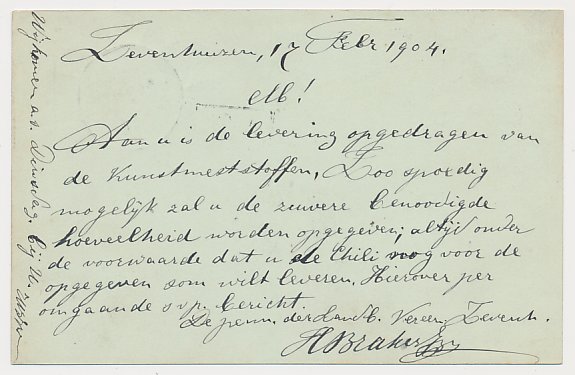 Zevenhuizen, 17 Febr 1904.
M!
Aan u is de levering opgedragen van
de Kunstmeststoffen, Zoo spoedig
mogelijk zal u de zuivere benoodigde
hoeveelheid worden opgegeven; altijd onder
de voorwaarde dat u de Chili nog voor de
opgegeven som wilt leveren. Hierover per
omgaande s.v.p. bericht.
De penn. der Landb. Vereen. Zevenh.
H Braker
Wij komen a.s. Dinsdag bij U.